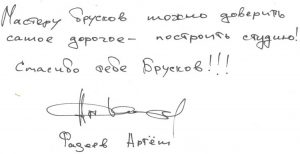 Мастеру Брусков можно доверить
самое дорогое – построить студию!
Спасибо тебе Брусков!!!
Фадеев Артём